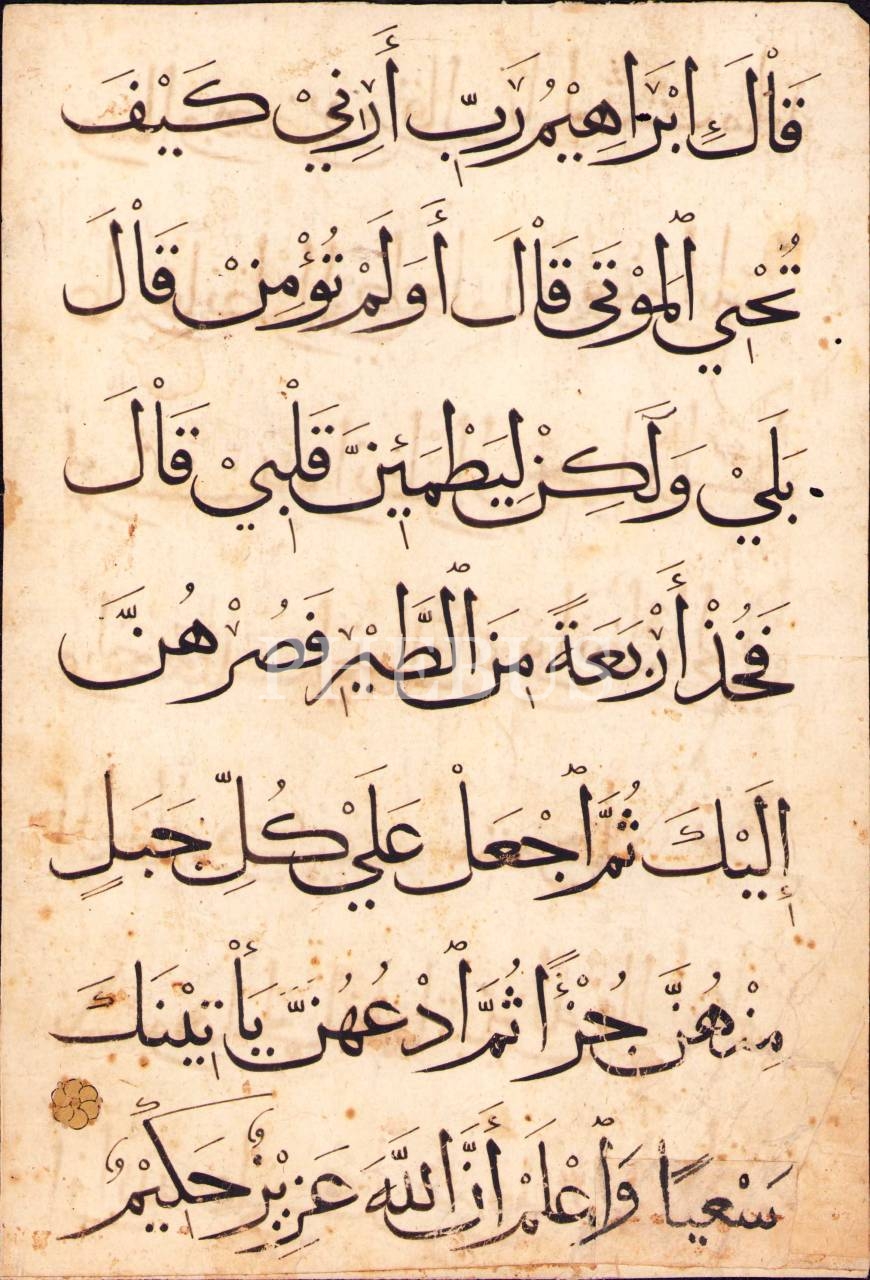 قَالَ إِبْرَاهِيْمُ رَبِّ أَرِنِيْ كَيْفَ
تُحْيِي الْمَوْتَى قَالَ أَوَلَمْ تُؤْمِنْ قَالَ
بَلَيْ وَلَكِنْ لِيَطْمَئِنَّ قَلْبِيْ قَالَ
فَخُذْ أَرْبَعَةً مِنَ الطَّيْرِ فَصُرْهُنَّ
إِلَيْكَ ثُمَّ اجْعَلْ عَلَيْ كُلِّ جَبَلٍ
مِنْهُنَّ جُزْءًا ثُمَّ ادْعُهُنَّ يَأْتِيْنَكَ
سَعْيًا وَاعْلَمْ أَنَّ اللَّهَ عَزِيْزٌ حَكِيْمٌ